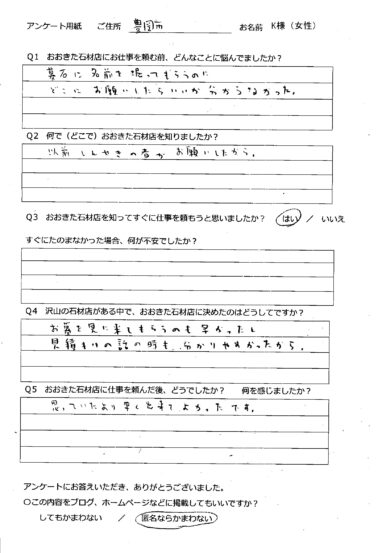 アンケート用紙 ご住所 豊岡市 お名前 K様（女性）
Q1 おおきた石材店にお仕事を頼む前、どんなことに悩んでましたか？
墓石に名前を堀ってもらうのに
どこにお願いしたらいいか分からなかった。
Q2 何で（どこで）おおきた石材店を知りましたか？
以前しんせきの者がお願いしたから。
Q3 おおきた石材店を知ってすぐに仕事を頼もうと思いましたか？ はい ／ いいえ
すぐにたのまなかった場合、何が不安でしたか？
Q4 沢山の石材店がある中で、おおきた石材店に決めたのはどうしてですか？
お墓を見に来てもらうのも早かったし
見積もりの話の時も、分かりやすかったから。
Q5 おおきた石材店に仕事を頼んだ後、どうでしたか？ 何を感じましたか？
思っていたより早く出来てよかったです。
アンケートにお答えいただき、ありがとうございました。
〇この内容をブログ、ホームページなどに掲載してもいいですか？
してもかまわない ／ 匿名ならかまわない